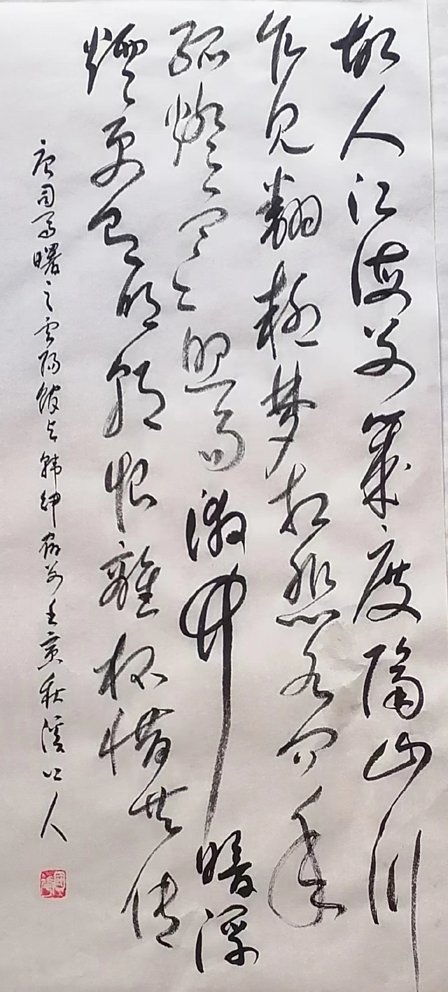 故人江海别幾度隔山川
乍见翻疑梦相悲各问年
孤燈寒照雨竹暗浮
煙更有明朝恨離杯惜共传
唐司曙之雲陽館与韩绅宿别壬寅秋溪人